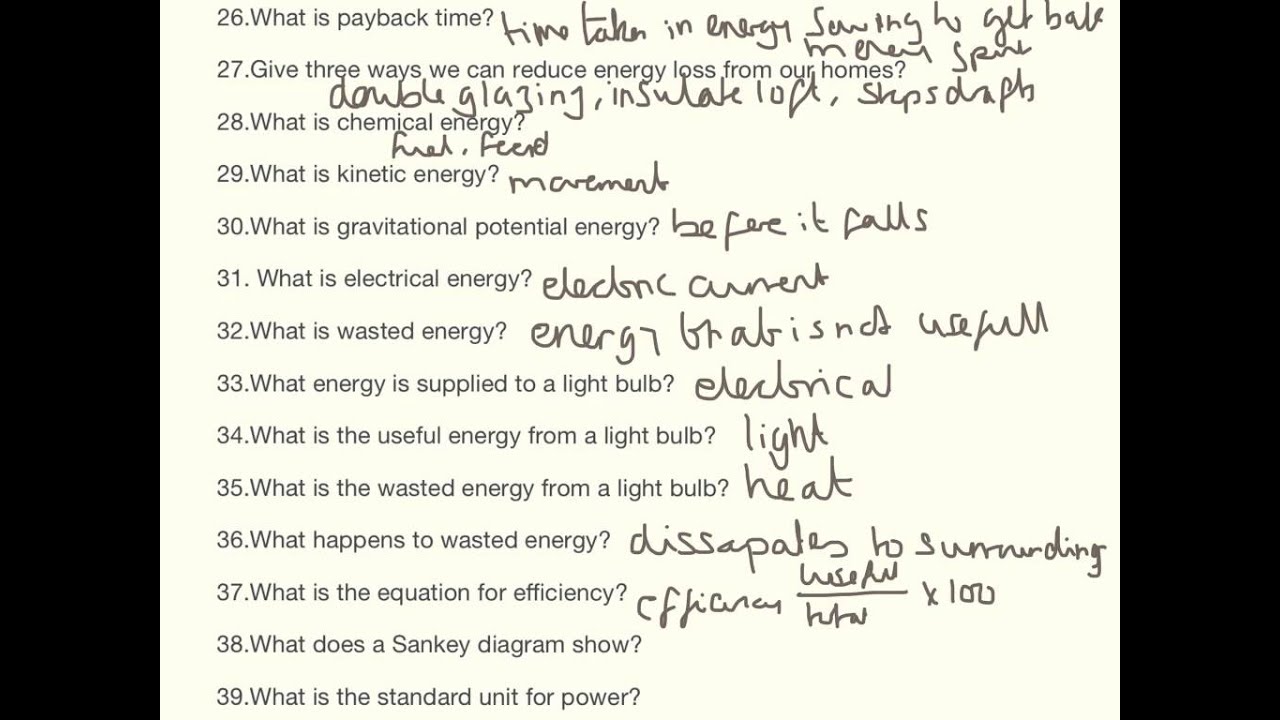 26.What is payback time? time taken in energy saving to get back
money spent
27.Give three ways we can reduce energy loss from our homes?
double glazing, insulate loft, stops drafts
28.What is chemical energy?
fuel. Food
29.What is kinetic energy? movement
30.What is gravitational potential energy? before it falls
31. What is electrical energy? electric current
32.What is wasted energy? energy that is not usefull
33.What energy is supplied to a light bulb? electrical
34.What is the useful energy from a light bulb? light
35.What is the wasted energy from a light bulb? heat
36.What happens to wasted energy? dissapates to surrounding
37.What is the equation for efficiency? efficiency useful
total x 100
38.What does a Sankey diagram show?
39.What is the standard unit for power?